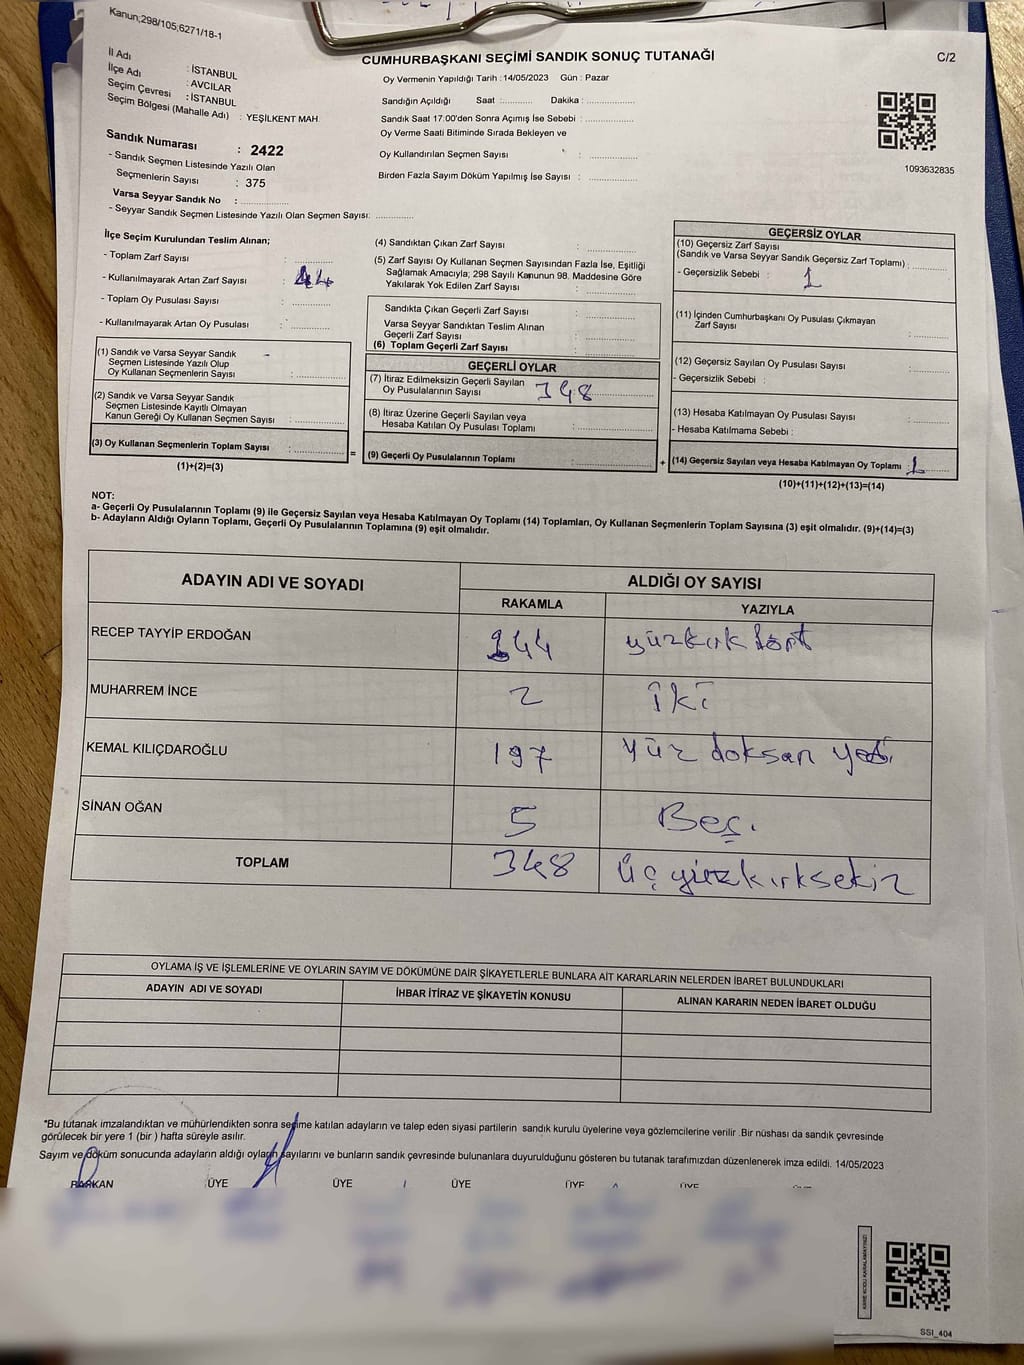 Kanun;298/105;6271/18-1
CUMHURBAŞKANI SEÇİMİ SANDIK SONUÇ TUTANAĞI
C/2
İl Adı : İSTANBUL
İlçe Adı : AVCILAR
Seçim Çevresi : İSTANBUL
Seçim Bölgesi (Mahalle Adı) : YEŞİLKENT MAH.
Oy Vermenin Yapıldığı Tarih : 14/05/2023 Gün : Pazar
Sandığın Açıldığı Saat :........... Dakika : ................
Sandık Saat 17:00'den Sonra Açımış İse Sebebi : ................
Oy Verme Saati Bitiminde Sırada Bekleyen ve
Oy Kullandırılan Seçmen Sayısı : ................
Birden Fazla Sayım Döküm Yapılmış İse Sayısı : ................
1093632835
Sandık Numarası : 2422
- Sandık Seçmen Listesinde Yazılı Olan
Seçmenlerin Sayısı : 375
Varsa Seyyar Sandık No : ................
- Seyyar Sandık Seçmen Listesinde Yazılı Olan Seçmen Sayısı: .............
İlçe Seçim Kurulundan Teslim Alınan;
- Toplam Zarf Sayısı : .............
- Kullanılmayarak Artan Zarf Sayısı :
- Toplam Oy Pusulası Sayısı : .............
- Kullanılmayarak Artan Oy Pusulası : .............
(1) Sandık ve Varsa Seyyar Sandık
Seçmen Listesinde Yazılı Olup
Oy Kullanan Seçmenlerin Sayısı : ................
(2) Sandık ve Varsa Seyyar Sandık
Seçmen Listesinde Kayıtlı Olmayan
Kanun Gereği Oy Kullanan Seçmen Sayısı : ................
(3) Oy Kullanan Seçmenlerin Toplam Sayısı : ................
(1)+(2)=(3)
=
(4) Sandıktan Çıkan Zarf Sayısı : ................
(5) Zarf Sayısı Oy Kullanan Seçmen Sayısından Fazla İse, Eşitliği
Sağlamak Amacıyla; 298 Sayılı Kanunun 98. Maddesine Göre
Yakılarak Yok Edilen Zarf Sayısı : ................
Sandıkta Çıkan Geçerli Zarf Sayısı : ................
Varsa Seyyar Sandıktan Teslim Alınan
Geçerli Zarf Sayısı : ................
(6) Toplam Geçerli Zarf Sayısı : ................
GEÇERLİ OYLAR
(7) İtiraz Edilmeksizin Geçerli Sayılan
Oy Pusulalarının Sayısı 348
(8) İtiraz Üzerine Geçerli Sayılan veya
Hesaba Katılan Oy Pusulası Toplamı : ................
(9) Geçerli Oy Pusulalarının Toplamı : ................
+
GEÇERSİZ OYLAR
(10) Geçersiz Zarf Sayısı
(Sandık ve Varsa Seyyar Sandık Geçersiz Zarf Toplamı) : .............
- Geçersizlik Sebebi : 1
(11) İçinden Cumhurbaşkanı Oy Pusulası Çıkmayan
Zarf Sayısı : .............
(12) Geçersiz Sayılan Oy Pusulası Sayısı : .............
- Geçersizlik Sebebi :
(13) Hesaba Katılmayan Oy Pusulası Sayısı : .............
- Hesaba Katılmama Sebebi :
(14) Geçersiz Sayılan veya Hesaba Katılmayan Oy Toplamı : 1
(10)+(11)+(12)+(13)=(14)
NOT:
a- Geçerli Oy Pusulalarının Toplamı (9) ile Geçersiz Sayılan veya Hesaba Katılmayan Oy Toplamı (14) Toplamları, Oy Kullanan Seçmenlerin Toplam Sayısına (3) eşit olmalıdır. (9)+(14)=(3)
b- Adayların Aldığı Oyların Toplamı, Geçerli Oy Pusulalarının Toplamına (9) eşit olmalıdır.
ADAYIN ADI VE SOYADI ALDIĞI OY SAYISI
RAKAMLA YAZIYLA
RECEP TAYYİP ERDOĞAN 144 yüzkırk dört
MUHARREM İNCE 2 iki
KEMAL KILIÇDAROĞLU 197 yüz doksan yedi
SİNAN OĞAN 5 Beş.
TOPLAM 348 üç yüzkırksekiz
OYLAMA İŞ VE İŞLEMLERİNE VE OYLARIN SAYIM VE DÖKÜMÜNE DAİR ŞİKAYETLERLE BUNLARA AİT KARARLARIN NELERDEN İBARET BULUNDUKLARI
ADAYIN ADI VE SOYADI İHBAR İTİRAZ VE ŞİKAYETİN KONUSU ALINAN KARARIN NEDEN İBARET OLDUĞU
*Bu tutanak imzalandıktan ve mühürlendikten sonra seçime katılan adayların ve talep eden siyasi partilerin sandık kurulu üyelerine veya gözlemcilerine verilir .Bir nüshası da sandık çevresinde
görülecek bir yere 1 (bir ) hafta süreyle asılır.
Sayım ve döküm sonucunda adayların aldığı oyların sayılarını ve bunların sandık çevresinde bulunanlara duyurulduğunu gösteren bu tutanak tarafımızdan düzenlenerek imza edildi. 14/05/2023
BAŞKAN ÜYE ÜYE ÜYE ÜYE ÜYE
KARE KODU KARALAMAYINIZ!
SSI_404